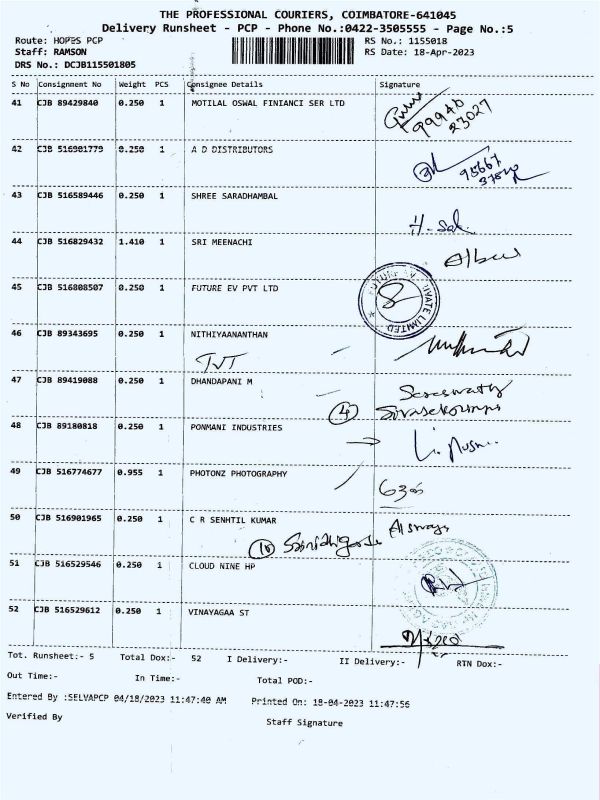 THE PROFESSIONAL COURIERS, COIMBATORE-641045
Delivery Runsheet - PCP - Phone No.:0422-3505555 - Page No.:5
Route: HOPES PCP
RS No.: 1155018
Staff: RAMSON
RS Date: 18-Apr-2023
DRS No.: DCJB115501805
S No Consignment No Weight PCS Consignee Details Signature
41 CJB 89429840 0.250 1 MOTILAL OSWAL FINIANCI SER LTD
99940
23027
42 CJB 516901779 0.250 1 A D DISTRIBUTORS
95667
43 CJB 516589446 0.250 1 SHREE SARADHAMBAL
44 CJB 516829432 1.410 1 SRI MEENACHI
45 CJB 516808507 0.250 1 FUTURE EV PVT LTD
FUTURE EV PRIVATE LIMITED
46 CJB 89343695 0.250 1 NITHIYAANANTHAN
TVT
47 CJB 89419088 0.250 1 DHANDAPANI M
4
48 CJB 89180818 0.250 1 PONMANI INDUSTRIES
49 CJB 516774677 0.955 1 PHOTONZ PHOTOGRAPHY
50 CJB 516901965 0.250 1 C R SENHTIL KUMAR
51 CJB 516529546 0.250 1 CLOUD NINE HP
52 CJB 516529612 0.250 1 VINAYAGAA ST
Tot. Runsheet:- 5 Total Dox:- 52 I Delivery:- II Delivery:- RTN Dox:-
Out Time:- In Time:- Total POD:-
Entered By :SELVAPCP 04/18/2023 11:47:40 AM Printed On: 18-04-2023 11:47:56
Verified By Staff Signature